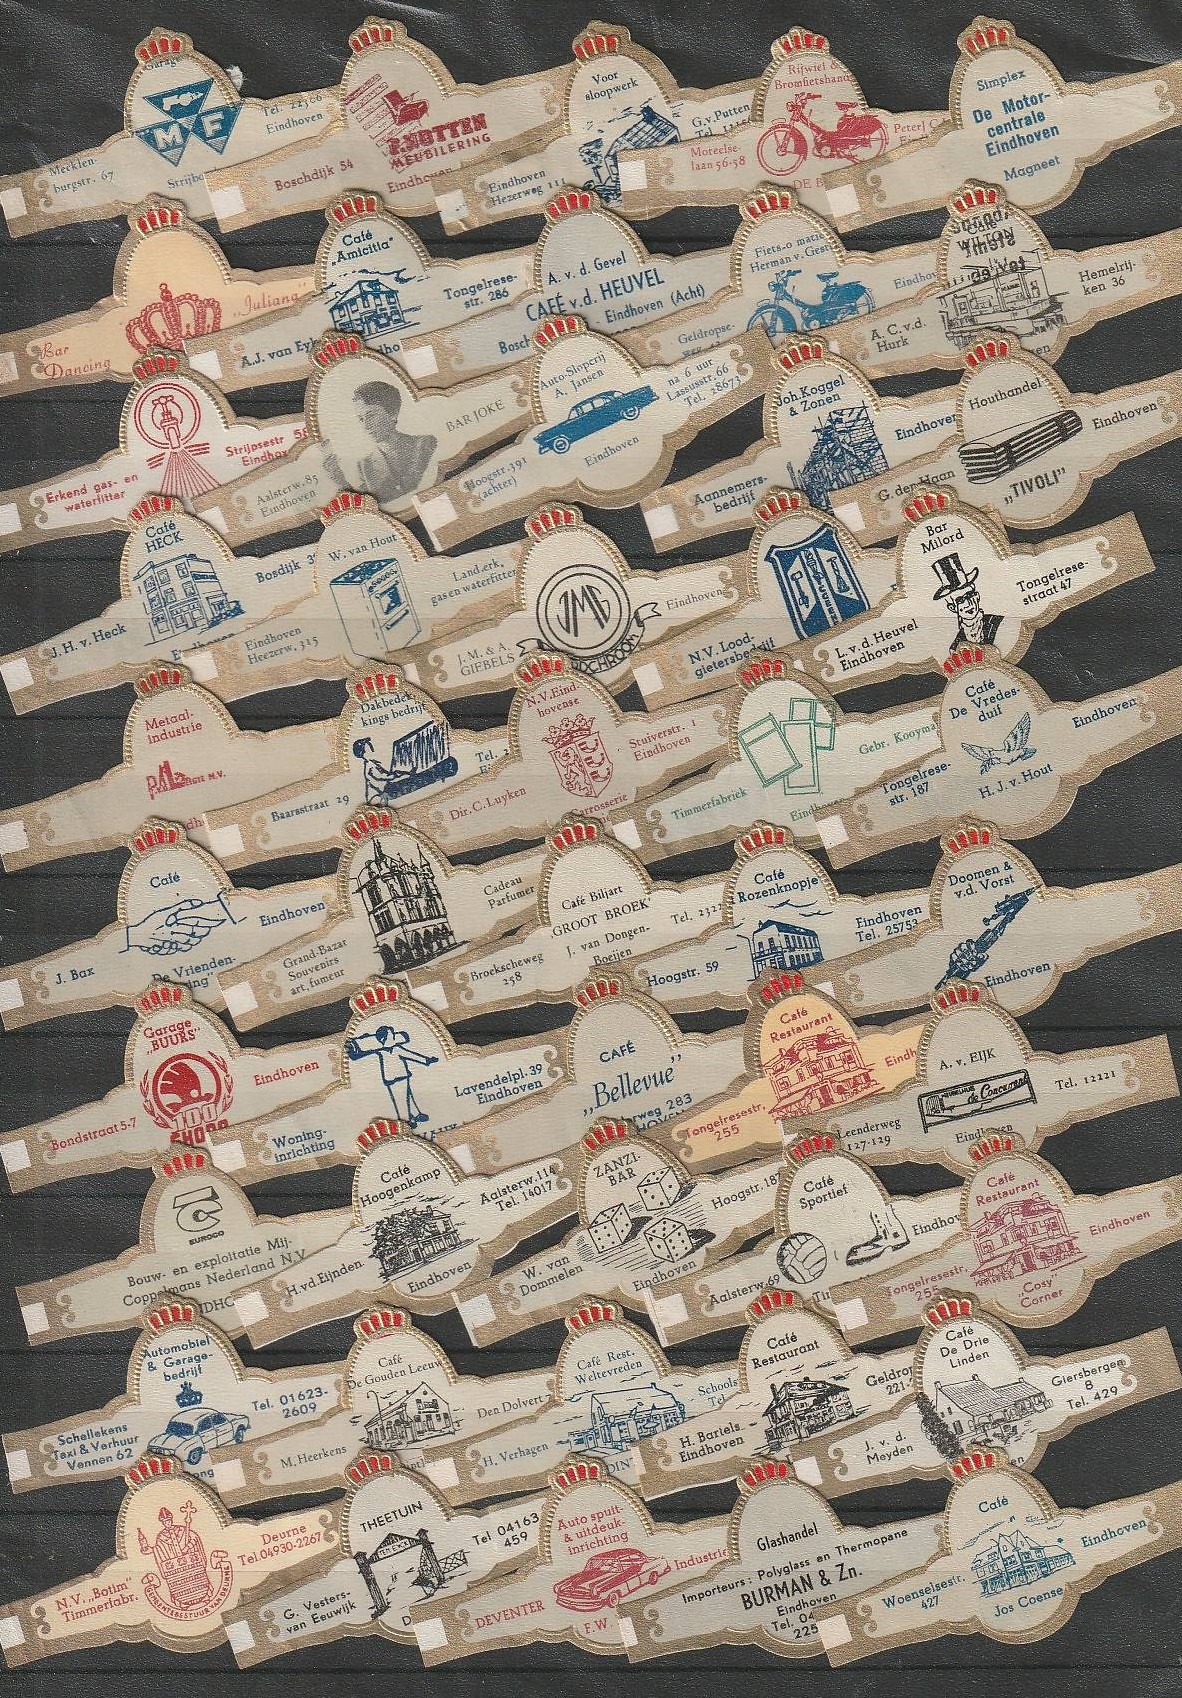 Garage
MF
Tel. 22306
Eindhoven
Mecklen-
burgstr. 67
P. NOTTEN
MEUBILERING
Boschdijk 54
Eindhoven
Voor
sloopwerk
G.v.Putten
Eindhoven
Hezerweg 111
Rijwiel &
Moreelse-
laan 56-58
Simplex
De Motor-
centrale
Eindhoven
Magneet
"Juliana"
Bar
Dancing
Café
"Amicitia"
Tongelrese-
str. 286
A.J. van Eyk
A. v. d. Gevel
CAFÉ v.d. HEUVEL
Eindhoven (Acht)
Fiets-o matic
Herman v. Gest
Geldropse-
WILTON
Hemelrij-
ken 36
A. C. v.d.
Hurk
Strijpsestr 58
Erkend gas- en
waterfitter
BAR JOKE
Aalsterw. 85
Eindhoven
Auto-Sloperij
A. Jansen
na 6 uur
Lassusstr. 66
Tel. 28673
Hoogstr. 391
(achter)
Eindhoven
Joh. Koggel
& Zonen
Eindhoven
Aannemers-
bedrijf
Houthandel
Eindhoven
G. den Haan
„TIVOLI"
Café
HECK
Bosdijk
J. H. v. Heck
W. van Hout
Land.erk.
gas en waterfitter
Eindhoven
Heezerw. 315
JMG
Eindhoven
J. M. & A.
GIEBELS
N.V. Lood-
gietersbedrijf
Bar
Milord
Tongelrese-
straat 47
L. v. d. Heuvel
Eindhoven
Metaal-
industrie
Dakbedek-
kings bedrijf
Baarsstraat 29
N.V. Eind-
hovense
Stuiverstr. 1
Eindhoven
Dir. C. Luyken
Carrosserie
Gebr. Kooyma
Timmerfabriek
Café
De Vredes-
duif
Eindhoven
Tongelrese-
str. 187
H. J. v. Hout
Café
Eindhoven
J. Bax
De Vrienden-
Cadeau
Parfumer
Grand-Bazar
Souvenirs
art. fumeur
Café Biljart
„GROOT BROEK"
J. van Dongen-
Boeijen
Broekscheweg
258
Café
Rozenknopje
Eindhoven
Tel. 25753
Hoogstr. 59
Doomen &
v.d. Vorst
Eindhoven
Garage
„BUURS"
Eindhoven
100
SKODA
Bondstraat 5-7
Lavendelpl. 39
Eindhoven
Woning-
inrichting
CAFÉ
„Bellevue"
Café
Restaurant
Tongelresestr.
255
A. v. EIJK
Tel. 12221
de Concurrent
Leenderweg
127-129
Eindh
EUROCO
Bouw- en exploitatie Mij-
Coppelmans Nederland N.V.
Café
Hoogenkamp
Aalsterw. 114
Tel. 14017
H. v.d. Eijnden
Eindhoven
ZANZI-
BAR
Hoogstr. 187
W. van
Dommelen
Eindhoven
Café
Sportief
Eindhov
Aalsterw. 69
Café
Restaurant
Eindhoven
Tongelresestr.
255
„Cosy"
Corner
Automobiel
& Garage-
bedrijf
Tel. 01623-
2609
Schellekens
Taxi & Verhuur
Vennen 62
Café
De Gouden Leeuw
Den Dolvert
M. Heerkens
Café Rest.
Weltevreden
Schools
H. Verhagen
Café
Restaurant
Geldrop
221-
H. Bartels.
Eindhoven
Café
De Drie
Linden
Giersbergen
8
Tel. 429
J. v. d.
Meyden
Deurne
Tel. 04930-2267
N.V. „Botim"
Timmerfabr.
THEETUIN
Tel 04163
459
G. Vesters-
van Eeuwijk
Auto spuit-
& uitdeuk-
inrichting
Industrie
DEVENTER
F. W.
Glashandel
Importeurs: Polyglass en Thermopane
BURMAN & Zn.
Eindhoven
Tel. 04
225
Café
Eindhoven
Woenselsestr.
427
Jos Coense